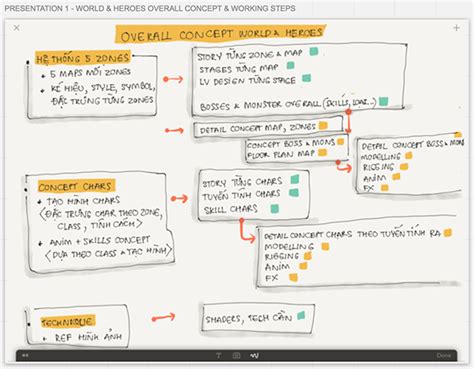 PRESENTATION 1 - WORLD & HEROES OVERALL CONCEPT & WORKING STEPS
OVERALL CONCEPT WORLD & HEROES
HỆ THỐNG 5 ZONES
+ 5 MAPS MỖI ZONES
+ KÍ HIỆU, STYLE, SYMBOL,
ĐẶC TRƯNG TỪNG ZONES
STORY TỪNG ZONE & MAP
STAGES TỪNG MAP
LV DESIGN TỪNG STAGE
BOSSES & MONSTER OVERALL (SKILLS, LOẠI...)
DETAIL CONCEPT MAP, ZONES
CONCEPT BOSS & MONS
FLOOR PLAN MAP
DETAIL CONCEPT BOSS & MON
MODELLING
RIGGING
ANIM
FX
CONCEPT CHARS
+ TẠO HÌNH CHARS
<ĐẶC TRƯNG CHAR THEO ZONE,
CLASS, TÍNH CÁCH>
+ ANIM + SKILLS CONCEPT
<DỰA THEO CLASS & TẠO HÌNH>
STORY TỪNG CHARS
TUYẾN TÍNH CHARS
SKILL CHARS
DETAIL CONCEPT CHARS THEO TUYẾN TÍNH RA
MODELLING
RIGGING
ANIM
FX
TECHNIQUE
+ REF HÌNH ẢNH
SHADERS, TECH CẦN